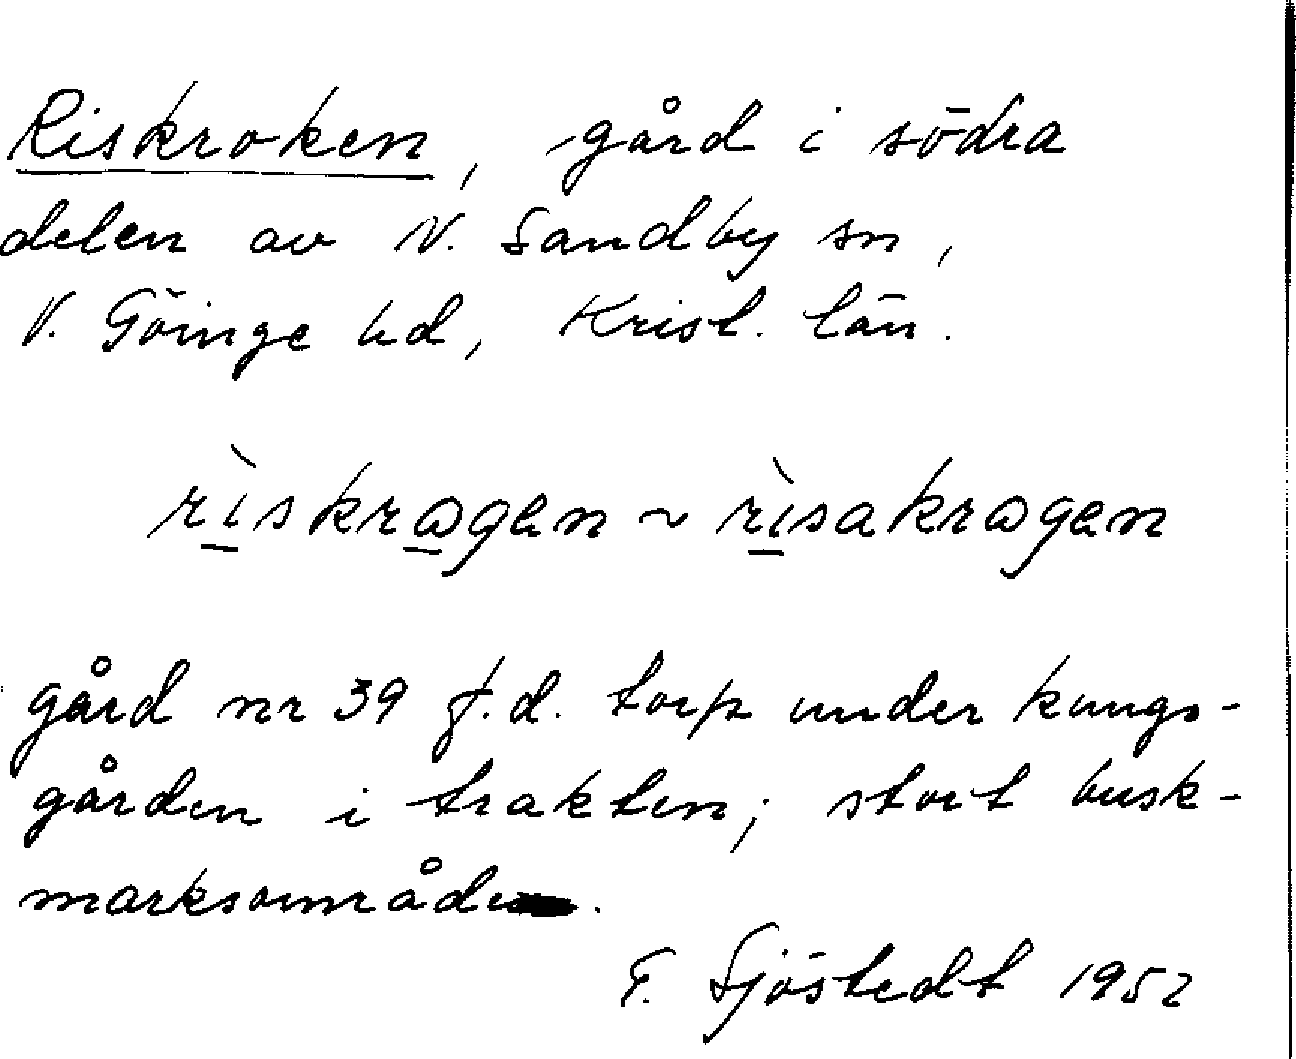 Riskroken, gård i södra
delen av N. Sandby sn,
V. Göinge hd, Krist. län.
rìskrɷgen ~ rìsakrɷgen
gård nr 39 f.d. torp under kungs-
gården i trakten; stort busk-
marksområde.
G. Sjöstedt 1952